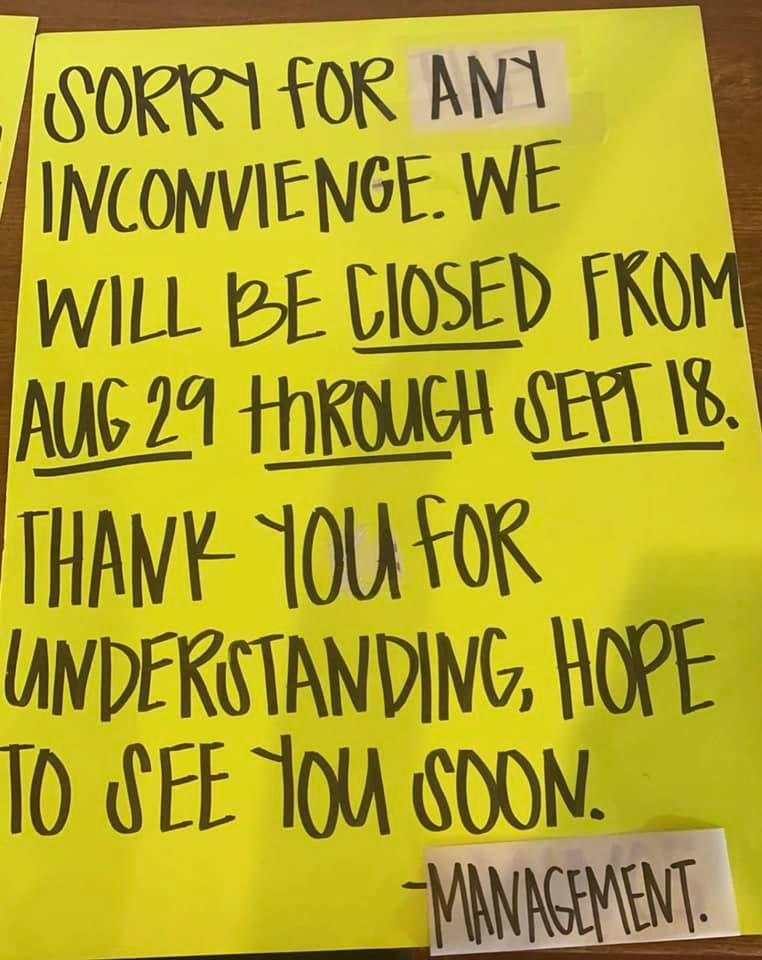 SORRY FOR ANY
INCONVIENCE. WE
WILL BE CLOSED FROM
AUG 29 THROUGH SEPT 18.
THANK YOU FOR
UNDERSTANDING, HOPE
TO SEE YOU SOON.
-MANAGEMENT.